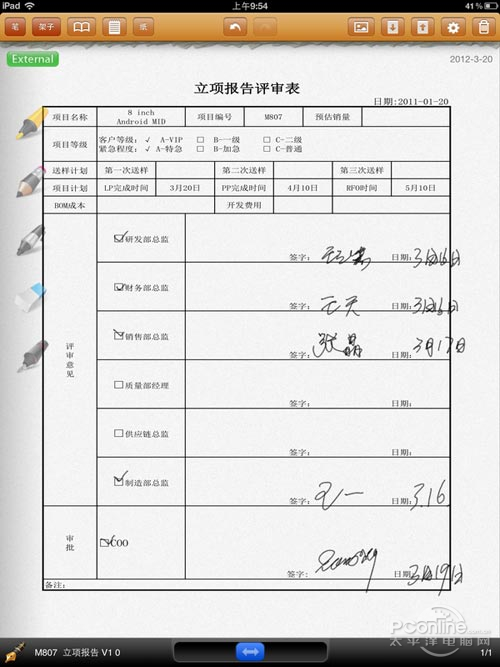 iPad 上午9:54 41%
笔 架子 纸
External 2012-3-20
立项报告评审表
日期:2011-01-20
项目名称 8 inch Android MID 项目编号 M807 预估销量
项目等级 客户等级: √ A-VIP □ B-一级 □ C-二级
紧急程度: √ A-特急 □ B-加急 □ C-普通
送样计划 第一次送样 第二次送样 第三次送样
项目计划 LP完成时间 3月20日 PP完成时间 4月10日 RFO时间 5月10日
BOM成本 开发费用
评审意见
☑研发部总监
签字: 日期: 3月16日
☑财务部总监
签字: 日期: 3月16日
☑销售部总监
签字: 张晶 日期: 3月17日
□质量部经理
签字: 日期:
□供应链总监
签字: 日期:
☑制造部总监
签字: 日期: 3.16
审批
☑COO
签字: 日期: 3月19日
备注:
PConline
太平洋电脑网
M807 立项报告 V1 0 1/1